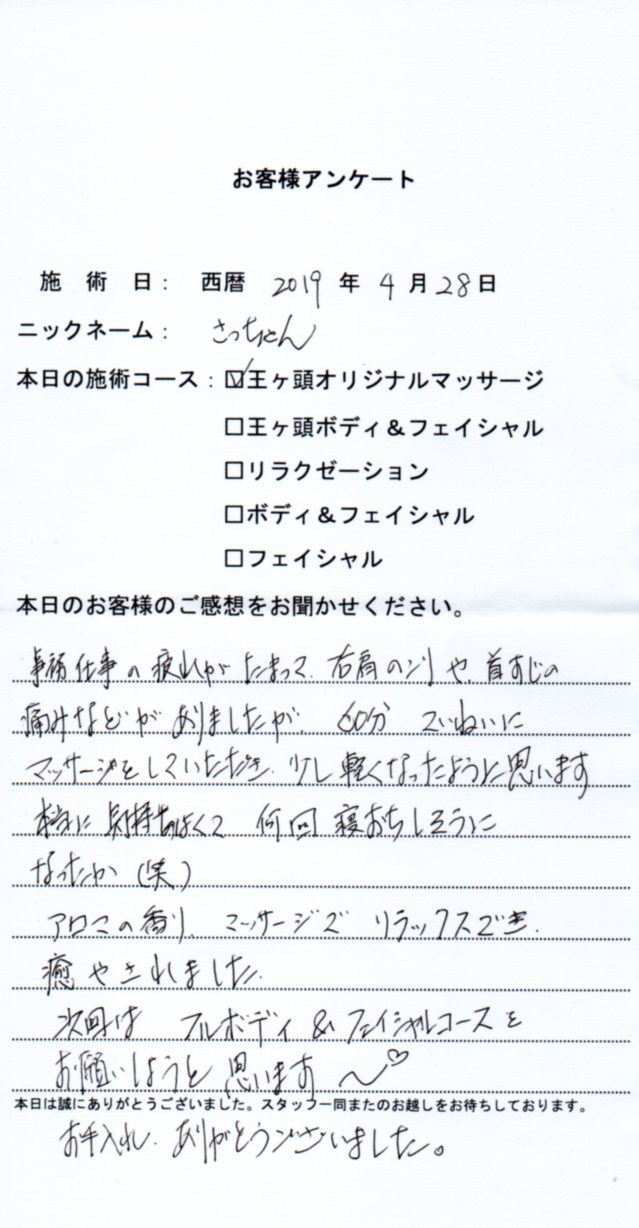 お客様アンケート
施術日： 西暦 2019 年 4 月 28 日
ニックネーム： さっちゃん
本日の施術コース：☑王ヶ頭オリジナルマッサージ
□王ヶ頭ボディ＆フェイシャル
□リラクゼーション
□ボディ＆フェイシャル
□フェイシャル
本日のお客様のご感想をお聞かせください。
事務仕事の疲れがたまって、右肩のコリや、首すじの
痛みなどがありましたが、60分 ていねいに
マッサージをしていただき、少し軽くなったように思います
本当に気持ちよくて 何回 寝おちしそうに
なったか（笑）
アロマの香り、マッサージで リラックスでき、
癒やされました。
次回は フルボディ&フェイシャルコースを
お願いしようと思います〜♡
本日は誠にありがとうございました。スタッフ一同またのお越しをお待ちしております。
お手入れ、ありがとうございました。